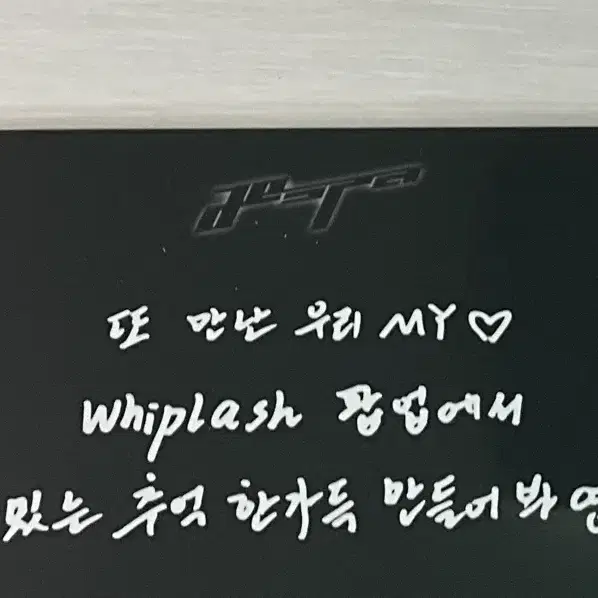 aespa
또 만난 우리 MY♡
Whiplash 팝업에서
밌는 추억 한가득 만들어봐